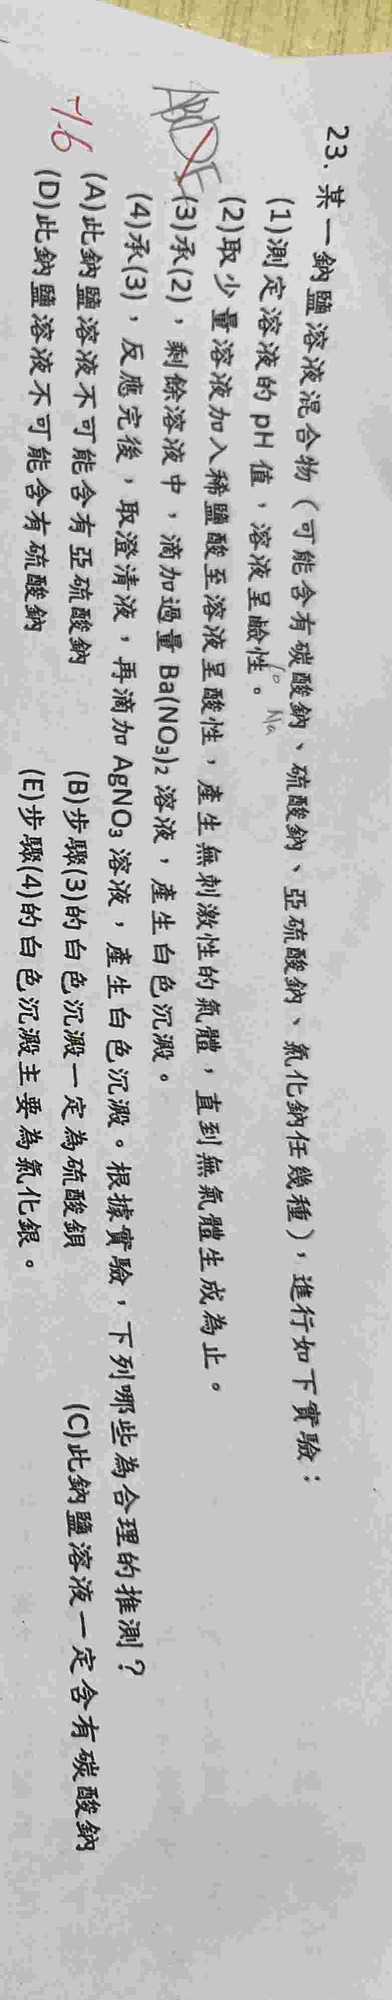 23. 某一鈉鹽溶液混合物（可能含有碳酸鈉、硫酸鈉、亞硫酸鈉、氯化鈉任幾種），進行如下實驗：
(1)測定溶液的 pH 值，溶液呈鹼性。
(2)取少量溶液加入稀鹽酸至溶液呈酸性，產生無刺激性的氣體，直到無氣體生成為止。
(3)承(2)，剩餘溶液中，滴加過量 Ba(NO₃)₂ 溶液，產生白色沉澱。
(4)承(3)，反應完後，取澄清液，再滴加 AgNO₃ 溶液，產生白色沉澱。根據實驗，下列哪些為合理的推測？
(A)此鈉鹽溶液不可能含有亞硫酸鈉 (B)步驟(3)的白色沉澱一定為硫酸鋇 (C)此鈉鹽溶液一定含有碳酸鈉
(D)此鈉鹽溶液不可能含有硫酸鈉 (E)步驟(4)的白色沉澱主要為氯化銀。
-1.6